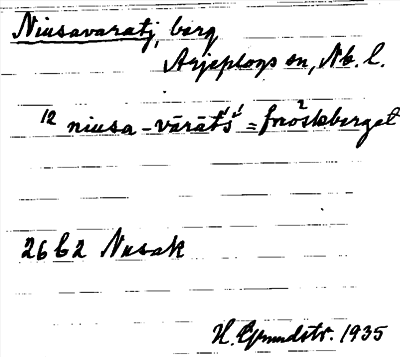 Niusavaratj, berg
Arjeplogs sn, Nb. l.
12 niusa-vārāt́ś = fnöskberget
26 b2 Nusak
H. Grundstr. 1935